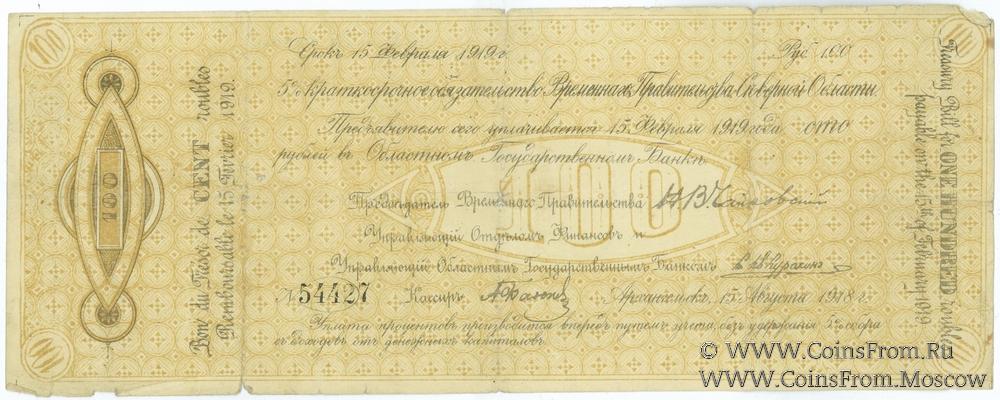 100
Срокъ 15 Февраля 1919 г. Руб. 100
5% краткосрочное обязательство Временнаго Правительства Сѣверной Области
Предъявителю сего уплачивается 15 Февраля 1919 года сто
рублей въ Областномъ Государственномъ Банкѣ
100
Предсѣдатель Временнаго Правительства Н. В. Чайковский
Управляющій Отдѣломъ Финансовъ и
Управляющій Областнымъ Государственнымъ Банкомъ
№ 54427 Кассиръ Архангельскъ, 15 Августа 1918 г.
Уплата процентовъ производится впередъ путемъ учета, безъ удержанія 5% сбора
съ доходовъ отъ денежныхъ капиталовъ.
Bons du Trésor de CENT roubles
Remboursable le 15 Février 1919.
100
Treasury Bill for ONE HUNDRED roubles
payable on the 15th of February 1919
100
100
100
© WWW.CoinsFrom.Ru
WWW.CoinsFrom.Moscow